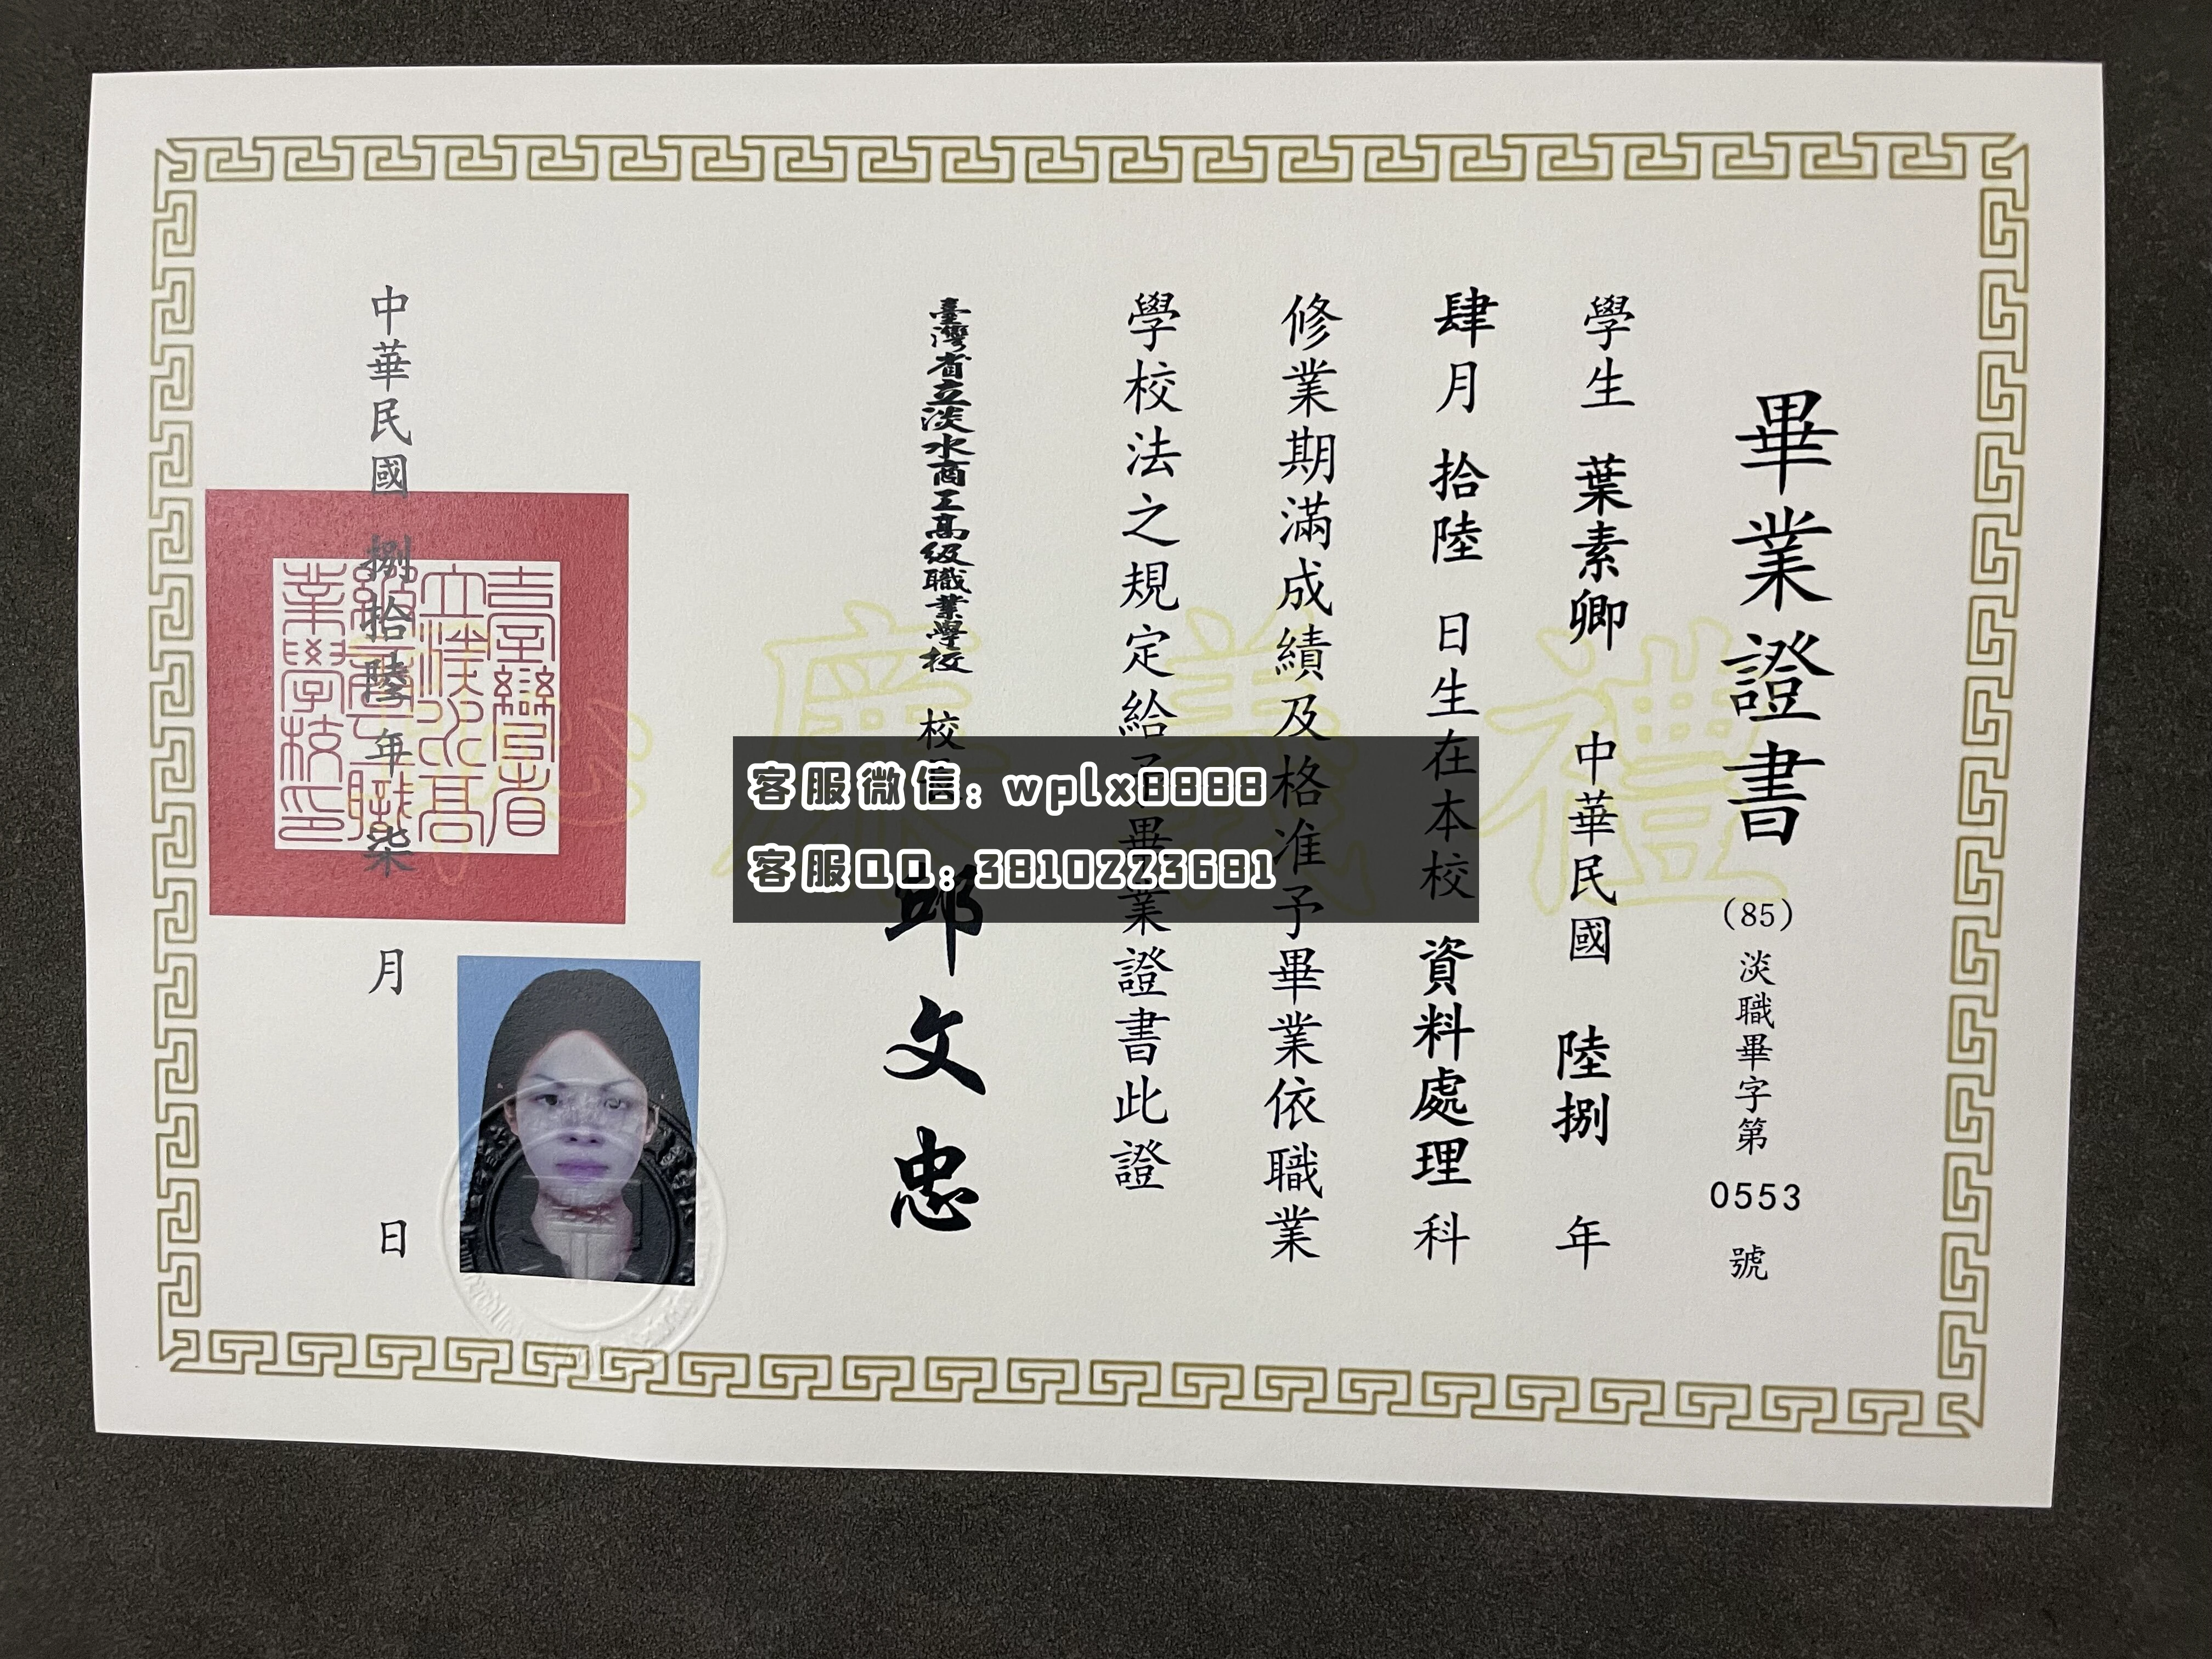 畢業證書
(85) 淡職畢字第 0553 號
學生 葉素卿 中華民國 陸捌 年
肆月 拾陸 日生在本校 資料處理 科
修業期滿成績及格准予畢業依職業
學校法之規定給予畢業證書此證
臺灣省立淡水商工高級職業學校 校長 邱文忠
中華民國 捌拾陸 年 柒 月 日
禮義廉恥
客服微信: wplx8888
客服QQ: 3810223681